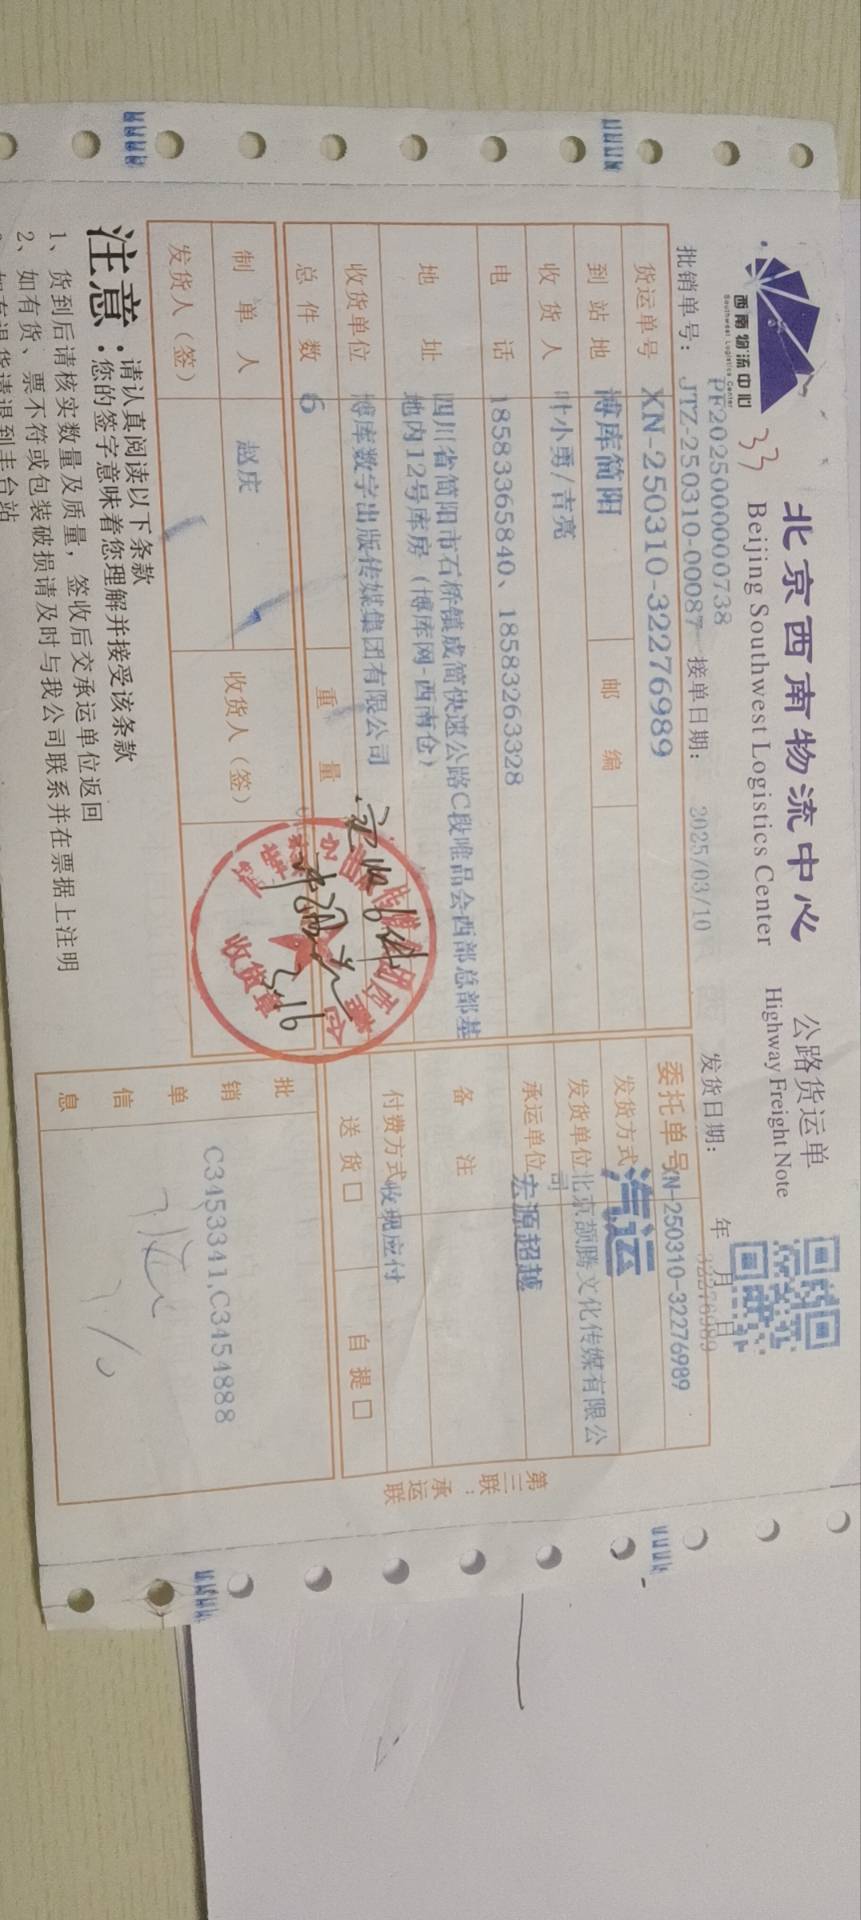 西南物流中心
Southwest Logistics Center
33
北京西南物流中心
Beijing Southwest Logistics Center
公路货运单
Highway Freight Note
PF202500000000738
批销单号: JTZ-250310-00087 接单日期: 2025/03/10 发货日期: 年 月 日
32276989
货运单号 XN-250310-32276989 委托单号 XN-250310-32276989
到站地 博库简阳 邮编 发货方式 汽运
收货人 叶小勇/吉亮 发货单位 北京颉腾文化传媒有限公
司
电话 18583365840、18583263328 承运单位 宏源超越
地址 四川省简阳市石桥镇成简快速公路C段唯品会西部总部基
地内12号库房（博库网-西南仓） 备注
收货单位 博库数字出版传媒集团有限公司 付费方式 收现应付
总件数 6 重量 送货□ 自提□
实收6件
3.16
收货章
制单人 赵庆 收货人（签）
发货人（签）
批销单信息 C3453341,C3454888
第三联：承运联
注意：请认真阅读以下条款
您的签字意味着您理解并接受该条款
1、货到后请核实数量及质量，签收后交承运单位返回
2、如有货、票不符或包装破损请及时与我公司联系并在票据上注明
如有退货请退到丰台站